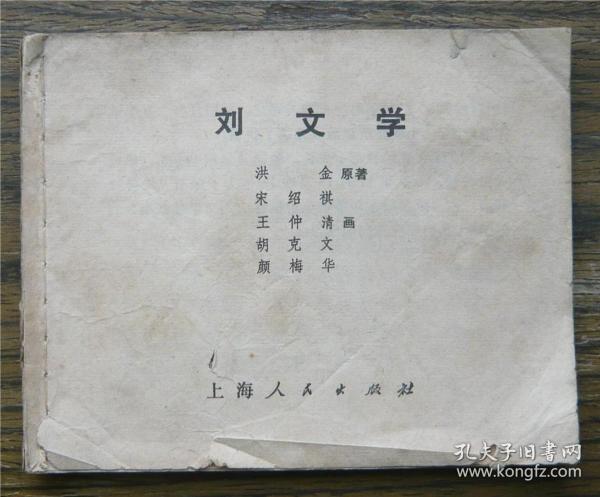 刘文学
洪金 原著
宋绍祺
王仲清 画
胡克文
颜梅华
上海人民出版社
孔夫子旧书网
www.kongfz.com